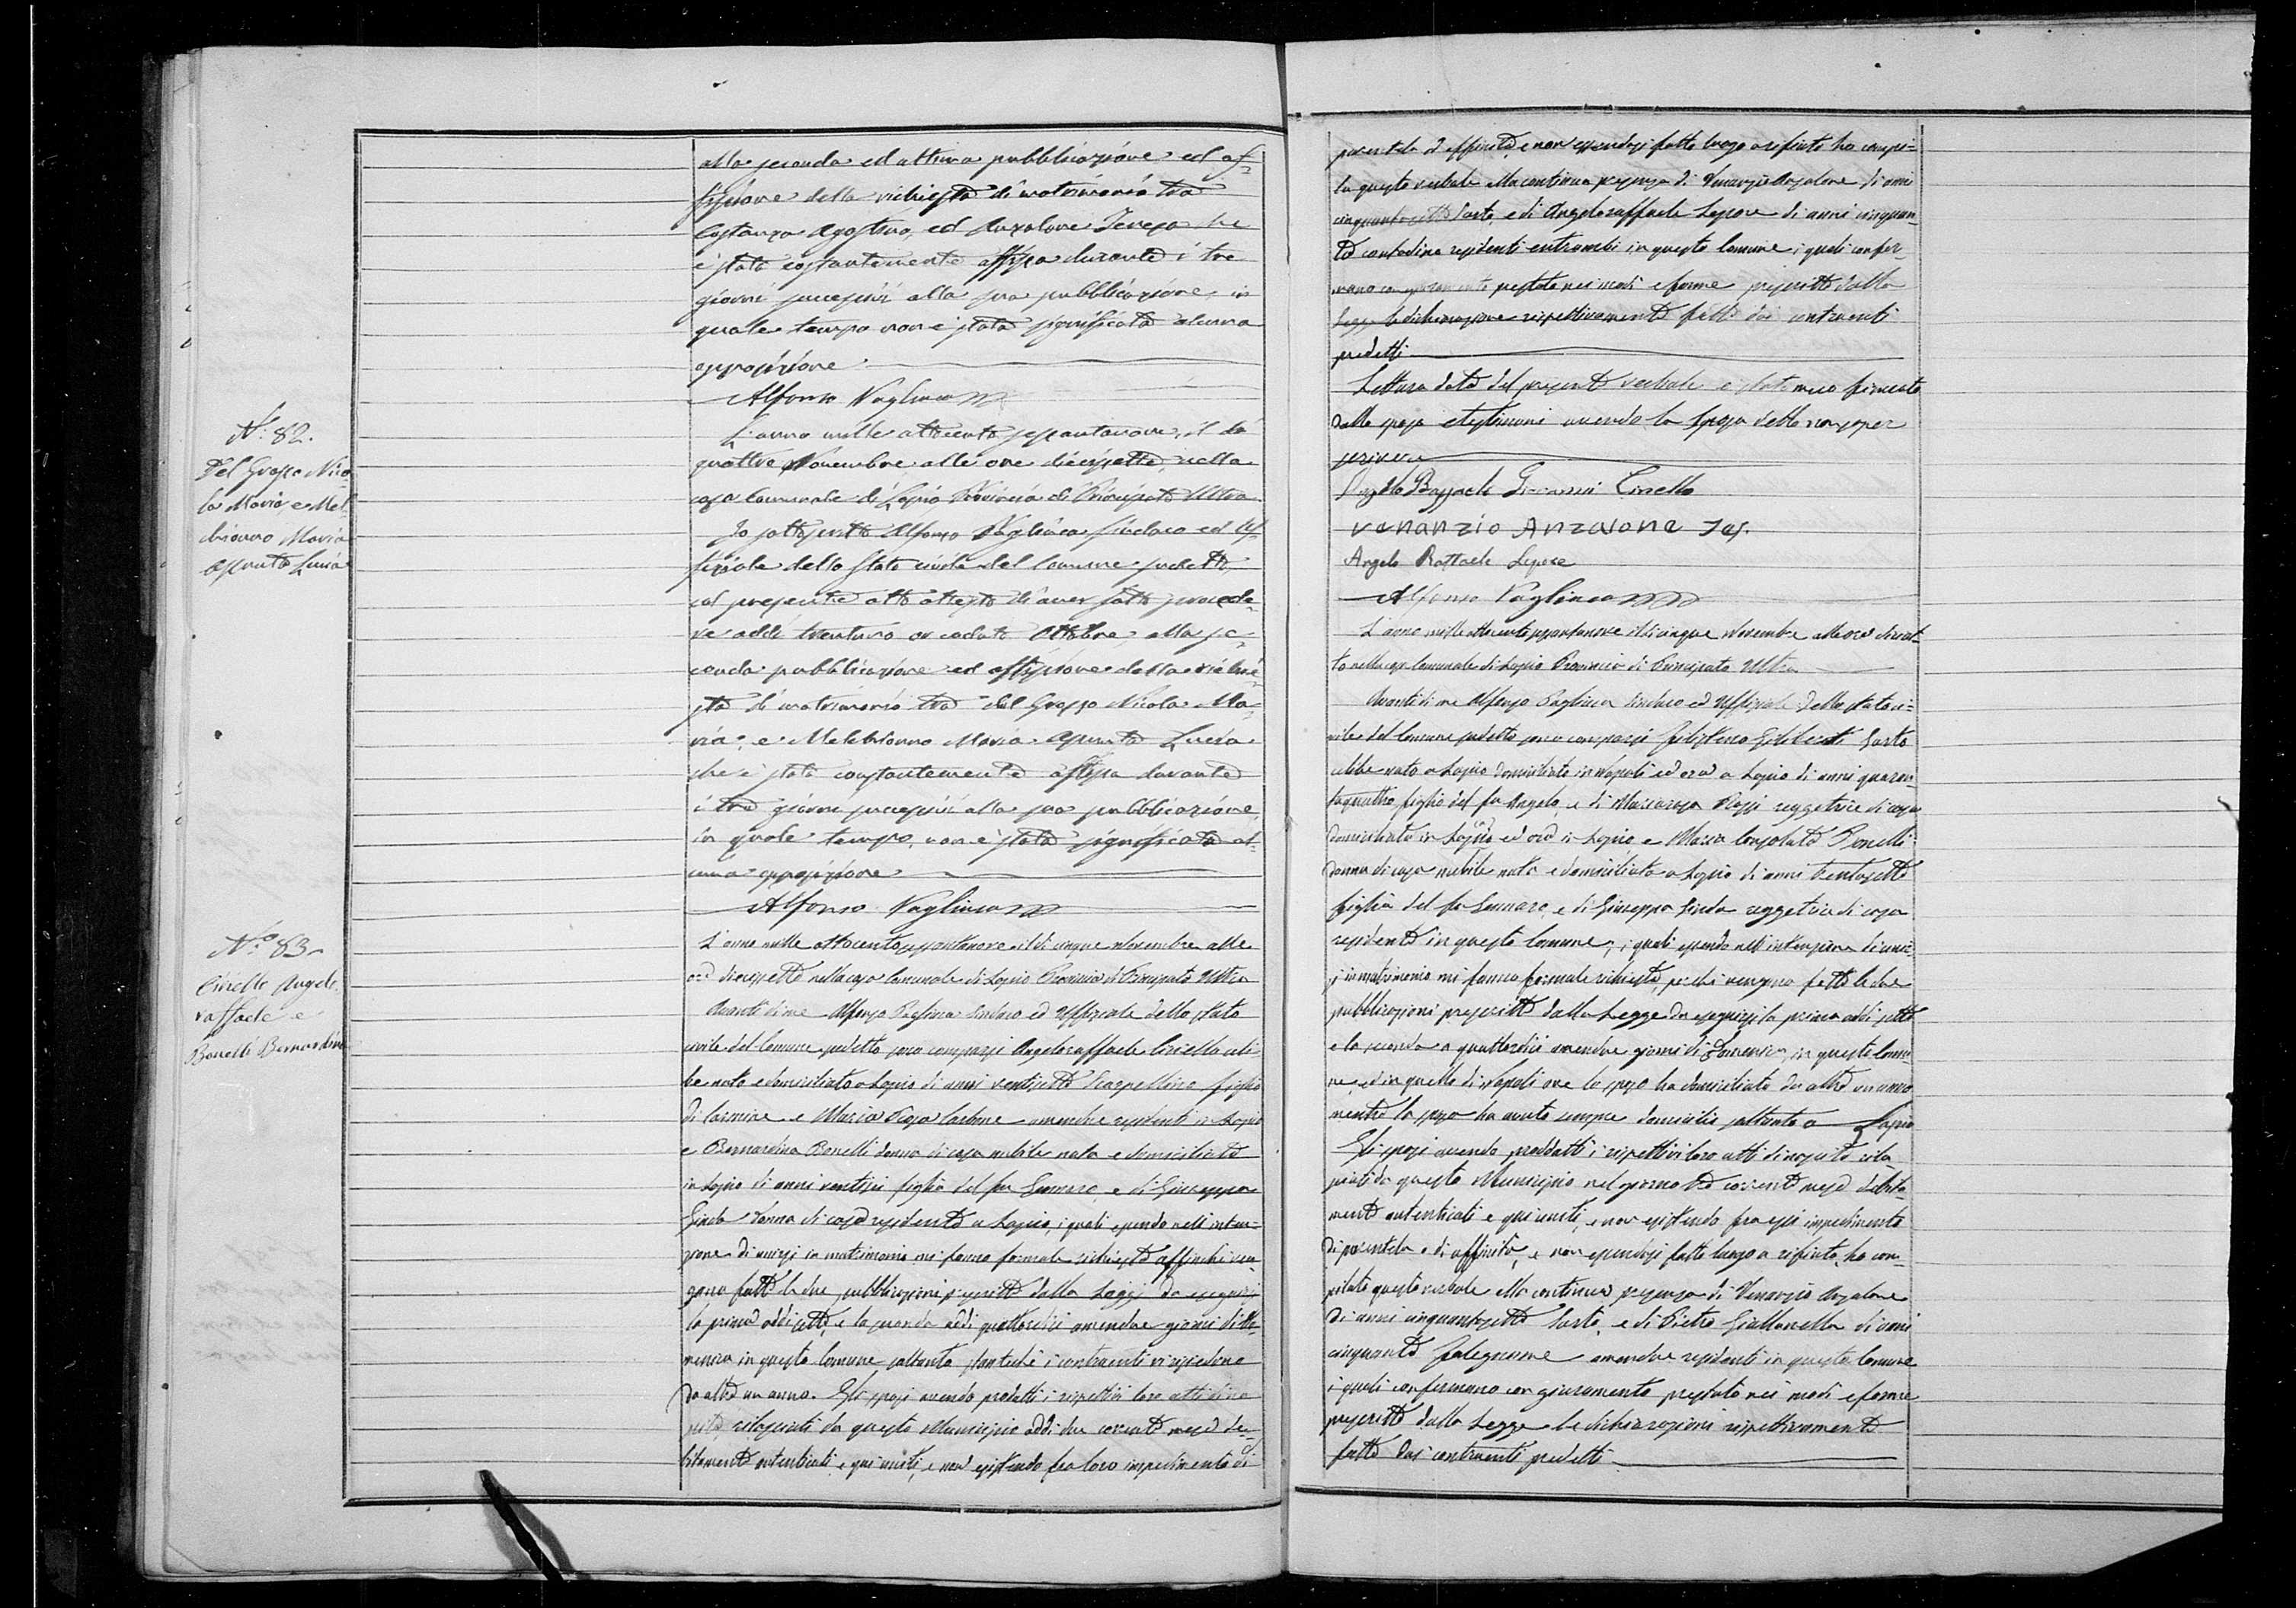 alla seconda ed ultima pubblicazione ed af-
fissione della richiesta di matrimonio tra
Costanza Agostino, ed Anzalone Teresa che
è stata costantemente affissa durante i tre
giorni successivi alla sua pubblicazione, in
quale tempo non è stata significata alcuna
opposizione
Alfonso Vagliuca
N.º 82.
Del Grosso Nico
la Maria e Mel
chionno Maria
Assunta Lucia
L'anno mille ottocento sessantanove, il dì
quattro Novembre alle ore diecisette, nella
casa Comunale di Lapio Provincia di Principato Ultra
Io sottoscritto Alfonso Vagliuca Sindaco ed Uf-
fiziale dello Stato civile del Comune sudetto,
col presente atto attesto di aver fatto procede-
re addì trentuno or caduto Ottobre, alla se-
conda pubblicazione ed affissione della richie-
sta di matrimonio tra del Grosso Nicola Ma-
ria, e Melchionno Maria Assunta Lucia
che è stata costantemente affissa durante
i tre giorni successivi alla sua pubblicazione,
in quale tempo, non è stata significata al-
cuna opposizione
Alfonso Vagliuca
N.º 83
Ciriello Angelo
raffaele e
Bonelli Bernardina
L'anno mille ottocentosessantanove il dì cinque Novembre alle
ore diecisette nella casa Comunale di Lapio Provincia di Principato Ultra
Avanti di me Alfonso Vagliuca Sindaco ed Uffiziale dello stato
civile del Comune sudetto sono comparsi Angeloraffaele Ciriello celi-
be nato e domiciliato a Lapio di anni ventisette Scarpellino figlio
di Carmine e Maria Rosa Carbone amendue residenti in Lapio
e Bernardina Bonelli donna di casa nubile nata e domiciliata
in Lapio di anni ventisei figlia del fu Gennaro, e di Giuseppa
Ginda donna di casa residente a Lapio, i quali essendo nell'inten-
zione di unirsi in matrimonio mi fanno formale richiesta affinchè ven-
gano fatte le due pubblicazioni prescritte dalla Legge da eseguirsi
la prima addì sette, e la seconda addì quattordici amendue giorni di Do-
menica in questo Comune soltanto stantechè i contraenti vi risiedono
da oltre un anno. Gli sposi avendo prodotti i rispettivi loro atti di na
scita, rilasciati da questo Municipio addì due corrente mese de-
bitamente autenticati, e qui uniti, e non esistendo fra loro impedimento di
parentela o affinità, e non essendosi fatto luogo a rifiuto ho compi-
lato questo verbale alla continua presenza di Venanzio Anzalone di anni
cinquantasette Sarto, e di Angeloraffaele Lepore di anni cinquan-
ta contadino residenti entrambi in questo Comune, i quali confer-
mano con giuramento prestato nei modi e forme prescritte dalla
Legge le dichiarazione rispettivamente fatte dai contraenti
predetti
Lettura data del presente verbale è stato meco firmato
dallo sposo e testimoni avendo la sposa detto non saper
scrivere
Angelo Raffaele Ciriello
Venanzio Anzalone Tes.
Angelo Raffaele Lepore
Alfonso Vagliuca
L'anno mille ottocento sessantanove il dì cinque Novembre alle ore diciot-
to nella casa Comunale di Lapio Provincia di Principato Ultra
Avanti di me Alfonso Vagliuca Sindaco ed Uffiziale dello stato ci-
vile del Comune sudetto sono comparsi Gilberti Sarto
celibe nato a Lapio domiciliato in Napoli ed ora a Lapio di anni quaran-
taquattro, figlio del fu Angelo, e di Mariarosa Rossi reggetrice di casa
domiciliata in Lapio ed ora in Lapio e Maria Consolata Bonelli
donna di casa nubile nata e domiciliata a Lapio di anni trentasette
figlia del fu Gennaro, e di Giuseppa Ginda reggetrice di casa
residente in questo Comune, i quali essendo nell'intenzione di unir-
si in matrimonio mi fanno formale richiesta, perchè vengano fatte le due
pubblicazioni prescritte dalla Legge da eseguirsi la prima addì sette
e la seconda a quattordici amendue giorni di Domenica, in questo Comu
ne, ed in quello di Napoli ove lo sposo ha domiciliato da oltre un anno
mentre la sposa ha avuto sempre domicilio soltanto a Lapio
Gli sposi avendo prodotti i rispettivi loro atti di nascita rila-
sciati da questo Municipio nel giorno tre corrente mese debita-
mente autenticati e qui uniti, e non esistendo fra essi impedimento
di parentela o di affinità, e non essendosi fatto luogo a rifiuto, ho com-
pilato questo verbale alla continua presenza di Venanzio Anzalone
di anni cinquantasette Sarto, e di Pietro Giallonella di anni
cinquanta falegname amendue residenti in questo Comune
i quali confermano con giuramento prestato nei modi e forme
prescritte dalla Legge le dichiarazioni rispettivamente
fatte dai contraenti predetti